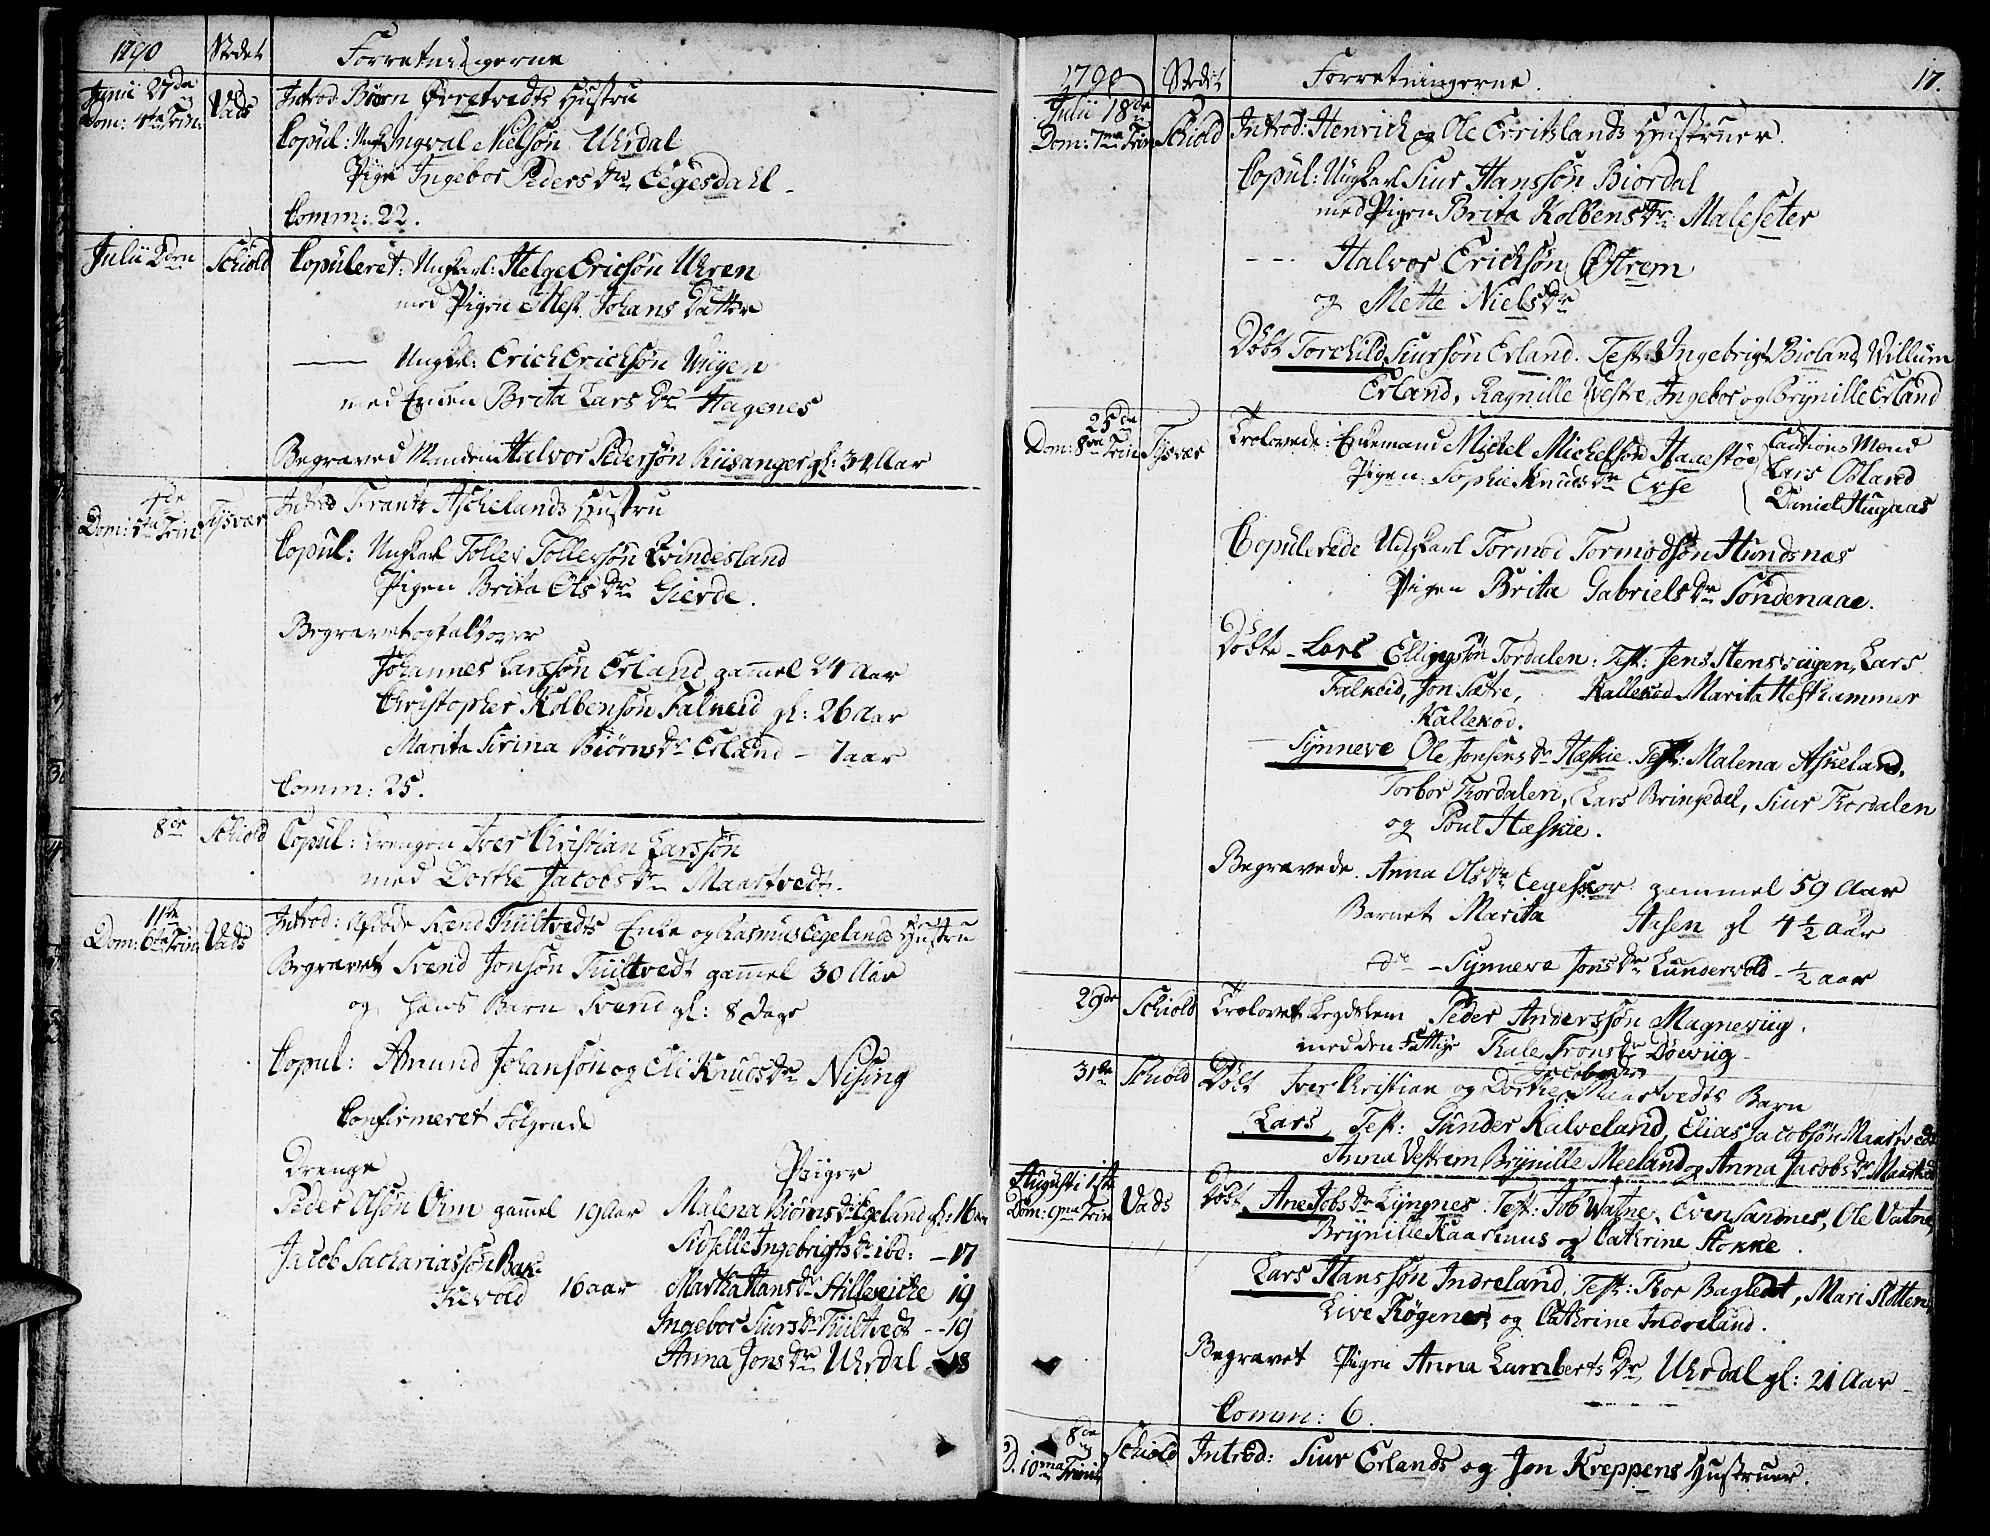 1790 Stedet Forretningerne
Junii 27de Dom: 4ta Trin: Vads Introd: Biørn Øvretvedts Hustru
Copul: Ungk. Ingval Nielsøn Uhrdal
Pige Ingebor Peders Dr Eegesdahl
Comm: 22.
Julii 2den Schiold Copuleret: Ungkarl: Helge Ericsøn Uhren
med Pigen Johans Datter
Ungkl: Erich Erichsøn Wiigen
med Enken Brita Lars Dr Hagenes
Begraved Manden Halvor Pedersøn Riisanger gl: 34 Aar
4de Dom: 5ta Trin Tysvær Introd Frantz Aschelands Hustru
Copul: Ungkarl Tollev Tollefsøn Qvindesland
Pigen Brita Ols Dr Gierde.
Begravet og kast over
Johannes Larssøn Erland gamel 24 Aar
Christopher Kolbensøn Falneid gl: 26 Aar
Marita Sirina Biørns Dr Erland - 7 aar
Comm: 25.
8de Schiold Copul: Drengen Iver Christian Larssøn
med Dorthe Jacobs Dr Maartvedt.
11te Dom: 6ta Trin: Vads Introd: Afdøde Svend Tuiltvedts Enke og Rasmus Eegelands Hustru
Begravet Svend Jonsøn Tuiltvedt gamel 30 Aar
og hans Barn Svend gl: 8 dage
Copul: Amund Johansøn og Eli Knuds Dr Nising
Confirmeret Følgende
Drenge Piiger
Peder Olsøn Ølm gamel 19 Aar Malena Biørns Dr Egeland gl: 16 aar
Sidselle Ingebrigts Dr ibd: - 17
Jacob Sachariassøn Bak-
kevold 16 aar Martha Hans Dr Hillesvicke 19
Ingebor Siurs Dr Tuiltvedt - 19
Anna Jons Dr Uhrdal - 18
1790 Stedet Forretningerne. 17.
Julii 18de Dom: 7ma Trin Schiold Introd: Henrich og Ole Erritslands Hustruer.
Copul: Ungkarl Siur Hanssøn Biordal
med Pigen Brita Kolbens Dr Maleseter
- - - Halvor Erichsøn Østrem
og Mette Niels Dr
Døbt Torchild Siursøn Erland. Test: Ingebrigt Bioland, Willum
Erland, Ragnille Vestre, Ingebor og Brynille Erland
25de Dom: 8va Trin Tysvær Trolovede: Enkemand Mickel Michelsøn Haaestøe Cautions Mænd
Pigen: Sophie Knuds Dr Erse Lars Øsland
Daniel Hugaas
Copulerede Ungkarl Tormod Tormodsøn Hundsnæs
Pigen Brita Gabriels Dr Søndenaae.
Døbte - Lars Ellingsøn Tordalen: Test: Jens Stensviigen, Lars
Falneid, Jon Sætre, Kallekod Marita Hesthammer
Kallekod.
- Synneve Ole Jonsens Dr Hæskie. Test: Malena Askeland,
Torbor Tordalen, Lars Bringedal, Siur Tordalen
og Poul Hæskie.
Begravede. Anna Ols Dr Eegeskor gammel 59 Aar
Barnet Marita Aasen gl 4 1/2 aar
do - Synneve Jons Dr Lundervold - 1/2 aar
29de Schiold Trolovet Legdslem Peder Anderssøn Magneviig.
med den Fattige Kale Trons Dr Døeviig
31te Schiold Døbt Iver Christian og Dorthe Jacobsdr Maartvedts Barn
Lars, Test: Gunder Kalveland, Elias Jacobsøn Maartvedt
Anna Vestrem Brynille Meeland og Anna Jacobs Dr Maartvedt
Augusti 1ste Dom: 9na Trin Vads Døbt Ane Jobs Dr Lyngnes. Test: Job Watne, Even Sandnes, Ole Vatne,
Brynille Kaarhuus og Cathrine Stokke.
Lars Hanssøn Indreland, Test: Tor Bagledt, Mari Slotten,
Live Røgenes og Cathrine Indreland.
Begravet Pigen Anna Lamberts Dr Uhrdal gl: 21 Aar
Comm: 6.
8de D. 10ma Trinit Schiold Introd: Siur Erlands og Jon Kreppens Hustruer.